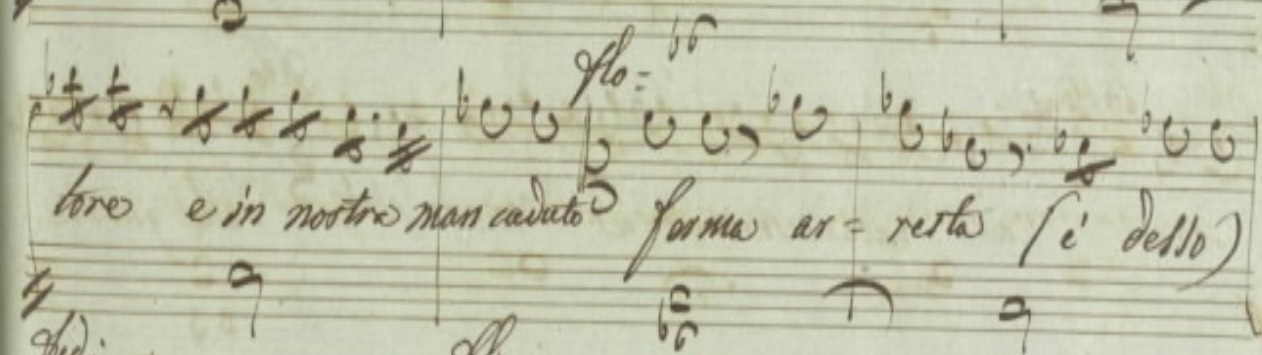 flo=
tore e in nostre man caduto forma ar= resta (è desso)